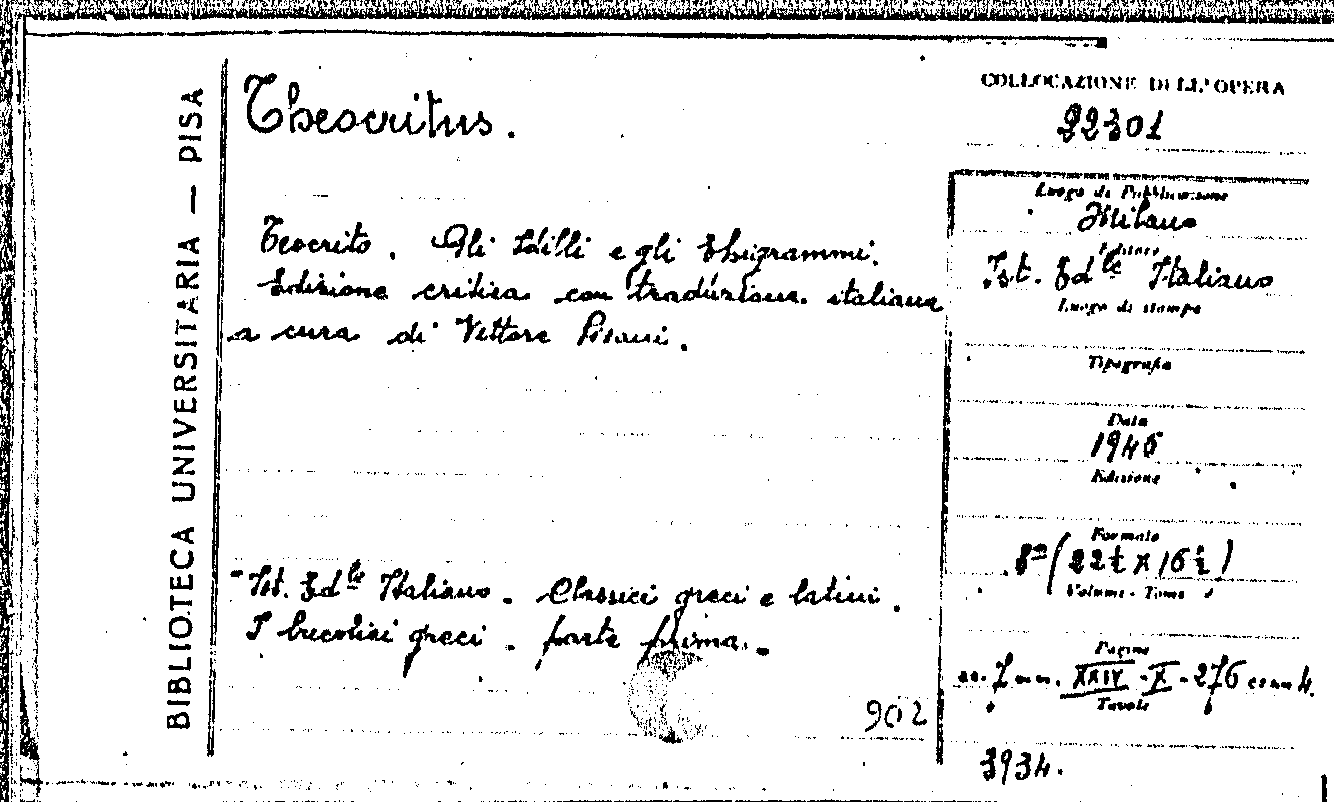 BIBLIOTECA UNIVERSITARIA — PISA
Theocritus.
Teocrito. Gli Idilli e gli Epigrammi.
Edizione critica con traduzione italiana
a cura di Vittore Pisani.
Ist. Ed.le Italiano. Classici greci e latini.
I bucolici greci. parte prima.
902
COLLOCAZIONE DELL'OPERA
22301
Luogo di Pubblicazione
Milano
Editore
Ist. Ed.le Italiano
Luogo di stampa
Tipografia
Data
1946
Edizione
Formato
8° (22½ x 16½)
Volumi - Tomi
Pagine
XXIV - X - 276
Tavole
3934.